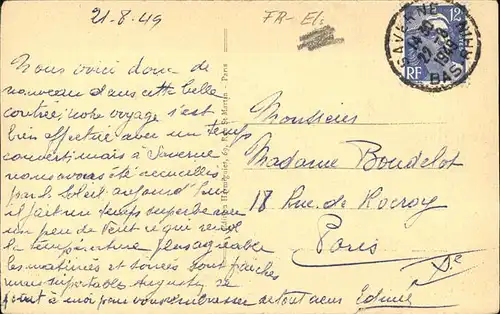 21-8-49
FR-EL
SAVERNE
BAS-RHIN
12
RF
Nous voici donc de
nouveau dans cette belle
contrée, notre voyage s'est
bien effectué avec un temps
couvert mais à Saverne
nous avons été accueillies
par le Soleil aujourd'hui
il fait un temps superbe avec
un peu de Vent ce qui rend
la température plus agréable
les matinées et soirées sont fraîches
mais supportables Auguste se
joint à moi pour vous embrasser de tout cœur Edmée
Monsieur
Madame Boudelot
18 Rue de Rocroy
Paris
Xe